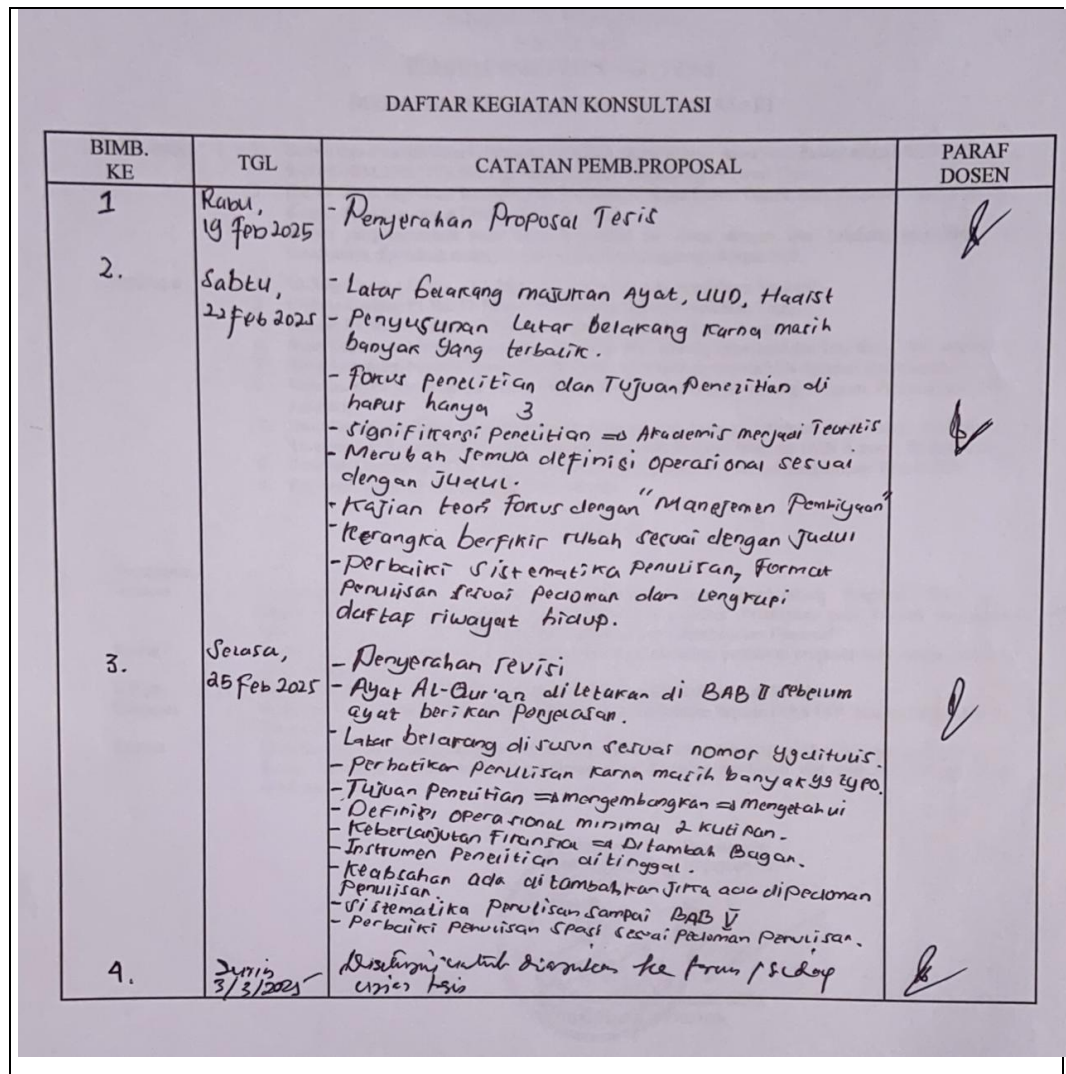 DAFTAR KEGIATAN KONSULTASI
BIMB. KE TGL CATATAN PEMB.PROPOSAL PARAF DOSEN
1 Rabu, 19 Feb 2025 - Penyerahan Proposal Tesis
2. Sabtu, 22 Feb 2025 - Latar belakang masukan Ayat, UUD, Hadist
- Penyusunan Latar belakang karna masih
banyak yang terbalik.
- Fokus penelitian dan Tujuan Penelitian di
hapus hanya 3
- Signifikansi Penelitian => Akademis menjadi Teoritis
- Merubah semua definisi operasional sesuai
dengan judul.
- Kajian teori fokus dengan "Manejemen Pembiyaan"
- Kerangka berfikir rubah sesuai dengan Judul
- Perbaiki sistematika penulisan, Format
Penulisan sesuai pedoman dan Lengkapi
daftar riwayat hidup.
3. Selasa, 25 Feb 2025 - Penyerahan revisi
- Ayat Al-Qur'an diletakan di BAB II sebelum
ayat berikan penjelasan.
- Latar belakang disusun sesuai nomor yg ditulis.
- Perhatikan penulisan karna masih banyak yg typo.
- Tujuan Penelitian => mengembangkan => mengetahui
- Definisi operasional minimal 2 kutipan.
- Keberlanjutan Finansial => Ditambah Bagan.
- Instrumen Penelitian ditinggal.
- Keabsahan ada ditambahkan jika ada dipedoman
Penulisan
- Sistematika Penulisan sampai BAB V
- Perbaiki penulisan spasi sesuai pedoman penulisan.
4. 3/3/2025 Disetujui untuk diajukan ke
tesis